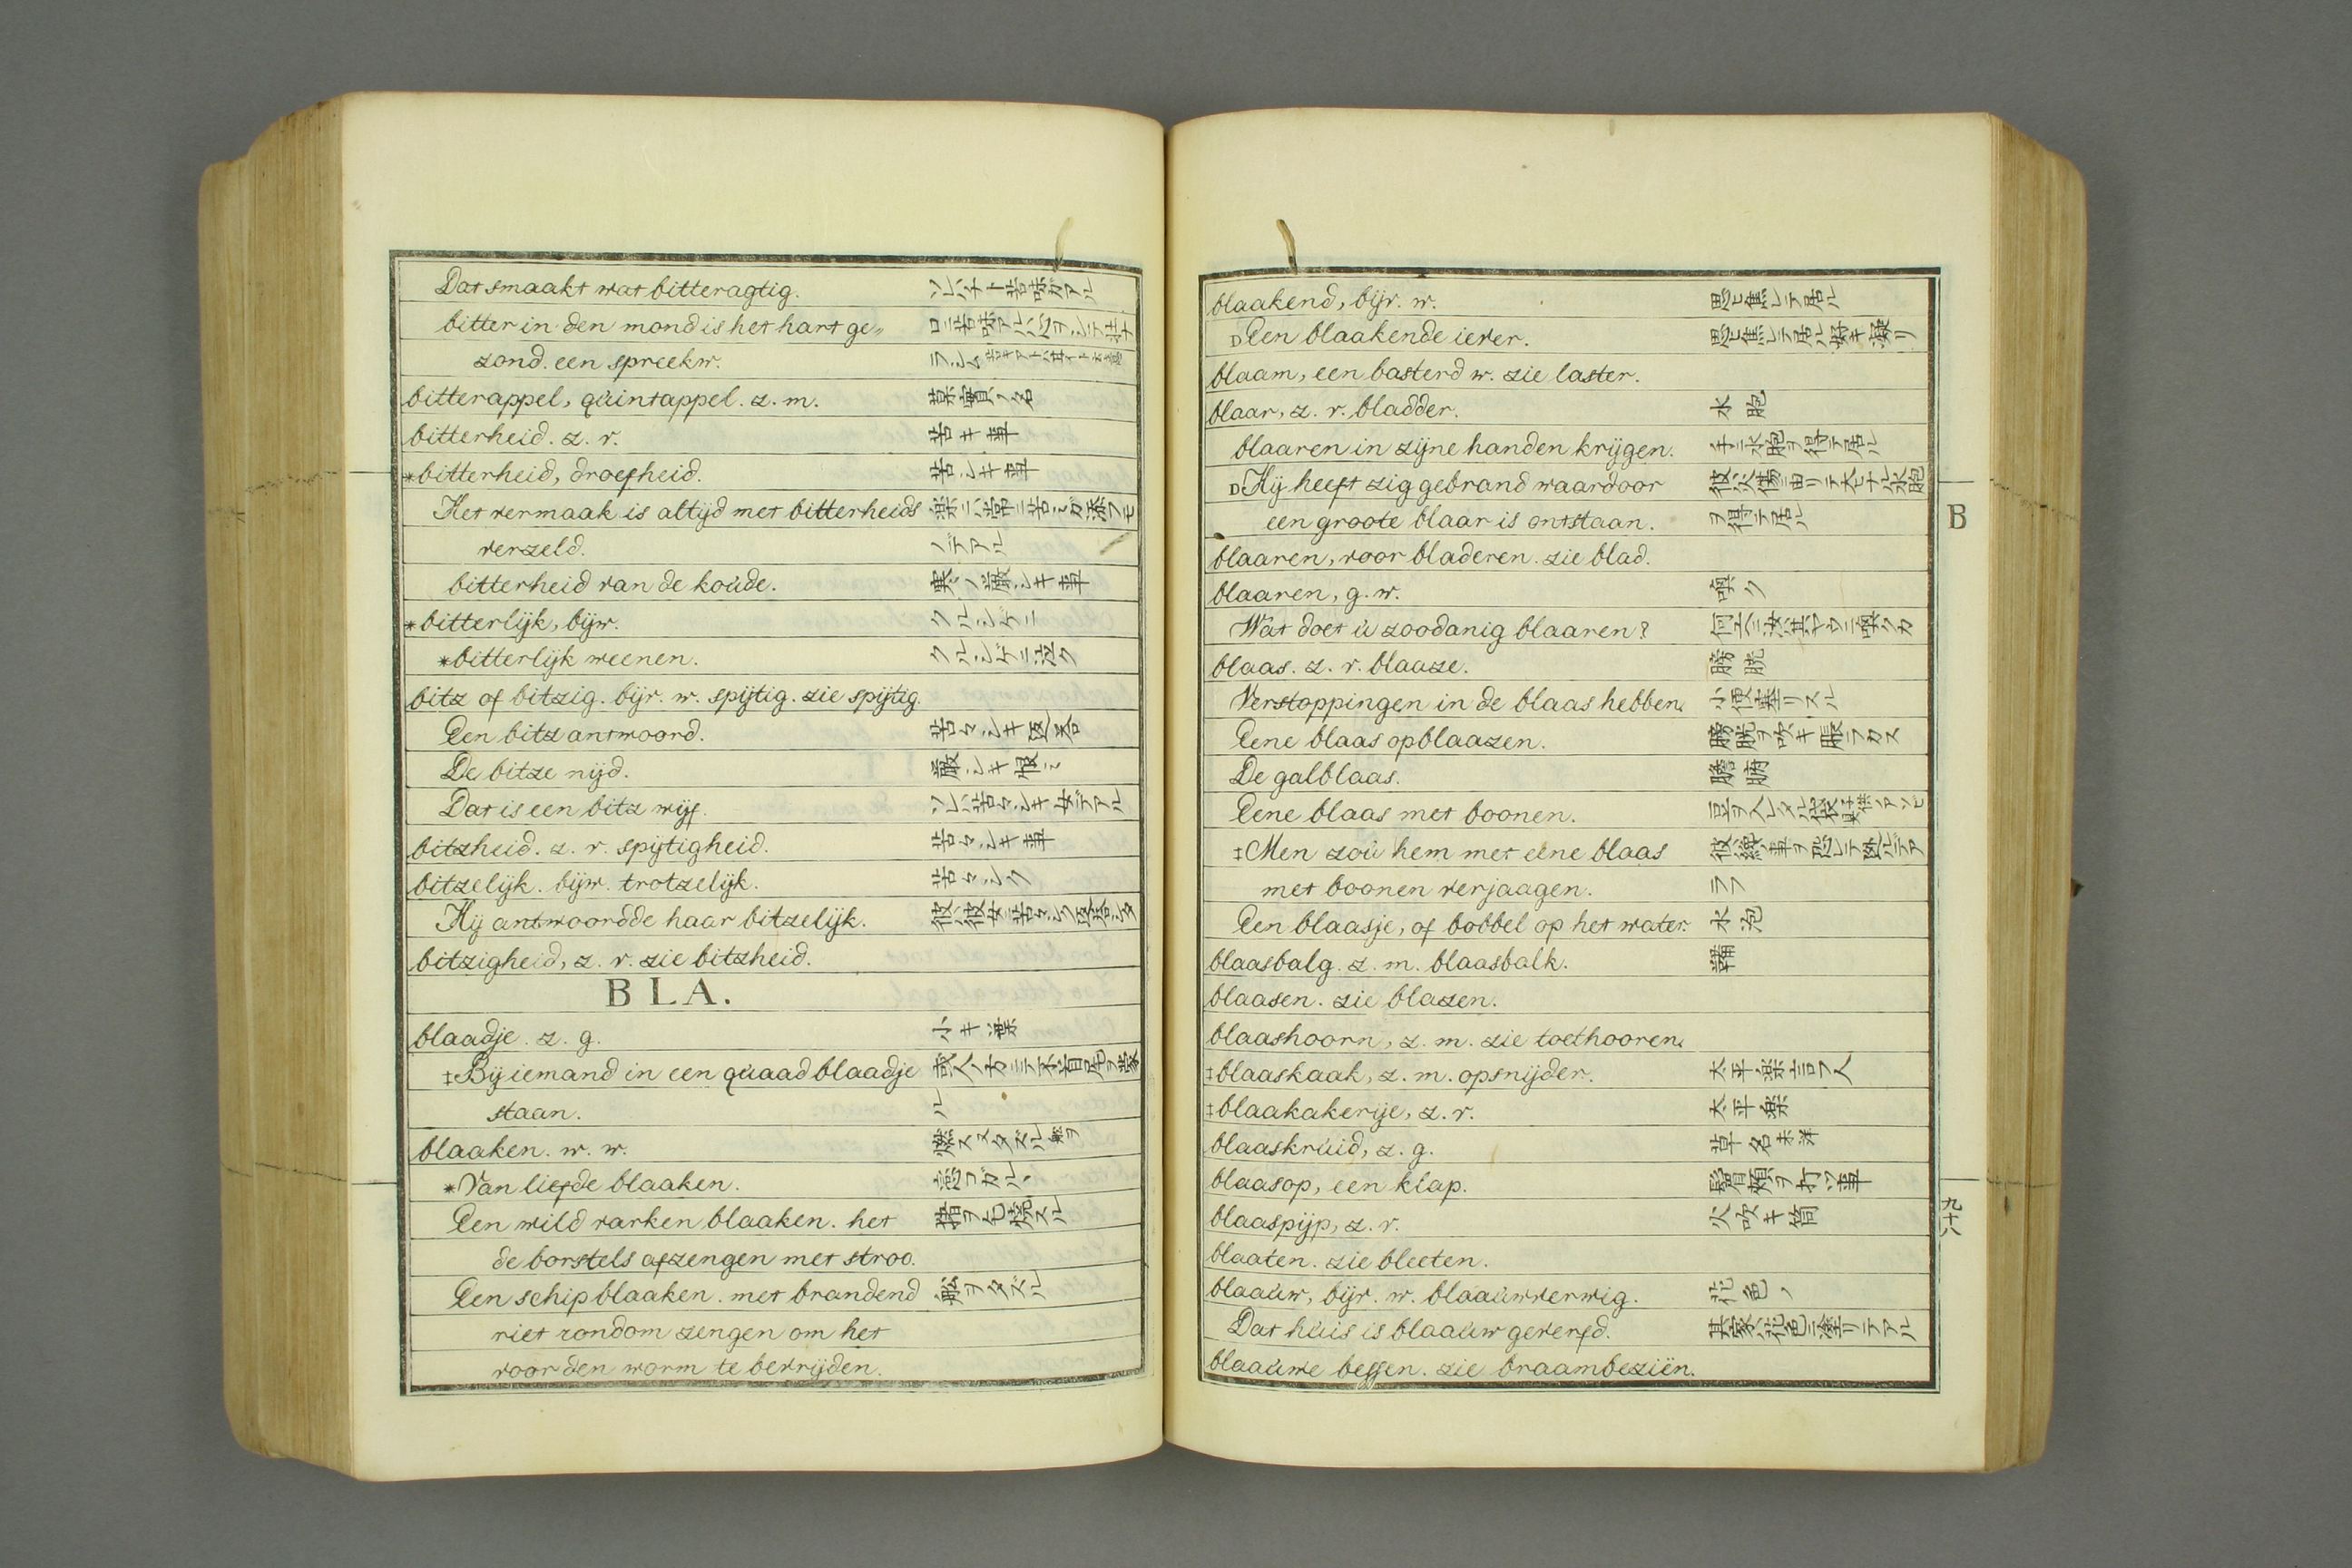 Dat smaakt wat bitteragtig. ソレハチト苦味ガアル
bitter in den mond is het hart ge„ 口ニ苦味アルハ心ヲシテ壮ナ
zond. een spreekw. ラシム
bitterappel, quintappel. z. m. 菓實ノ名
bitterheid. z. v. 苦キ事
*bitterheid, droefheid. 苦シキ事
Het vermaak is altijd met bitterheids 楽ニハ常ニ苦ミガ添フモ
verzeld. ノデアル
bitterheid van de koude. 寒ノ厳シキ事
*bitterlijk, bijw. クルシゲニ
*bitterlijk weenen. クルシゲニ泣ク
bitz of bitzig. bijv. w. spijtig. zie spijtig.
Een bitz antwoord. 苦々シキ返答
De bitze nijd. 厳シキ恨ミ
Dat is een bitz wijf. ソレハ苦々シキ女デアル
bitzheid. z. v. spijtigheid. 苦々シキ事
bitzelijk. bijw. trotzelijk. 苦々シク
Hij antwoordde haar bitzelijk. 彼ハ彼女ニ苦々シク返答シタ
bitzigheid, z. v. zie bitzheid.
BLA.
blaadje. z. g. 小キ葉
‡Bij iemand in een quaad blaadje 或人ノ方ニテ不首尾ヲ蒙
staan. ル
blaaken. w. w. 燃ス 又タデル 船ヲ
*Van liefde blaaken. 恋コガルヽ
Een wild varken blaaken. het 猪ヲ毛焼スル
de borstels afzengen met stroo.
Een schip blaaken. met brandend 船ヲタデル
riet rondom zengen om het
voor den worm te bevrijden.
blaakend, bijv. w. 思ヒ焦レテ居ル
DEen blaakende iever. 思ヒ焦レテ居ル好キ凝リ
blaam, een basterd w. zie laster.
blaar, z. v. bladder. 水胞
blaaren in zijne handen krijgen. 手ニ水胞ヲ得テ居ル
DHij heeft zig gebrand waardoor 彼ハ火傷ニ由リテ大ヒナル水胞
een groote blaar is ontstaan. ヲ得テ居ル
B
blaaren, voor bladeren. zie blad.
blaaren, g. w. 喚ク
Wat doet u zoodanig blaaren? 何故ニ汝ハ其ヤウニ喚クカ
blaas. z. v. blaaze. 膀胱
Verstoppingen in de blaas hebben. 小便塞リスル
Eene blaas opblaazen. 膀胱ヲ吹キ脹ラカス
De galblaas. 膽腑
Eene blaas met boonen. 豆ヲ入レタル袋
‡Men zou hem met eene blaas
met boonen verjaagen. ラフ
Een blaasje, of bobbel op het water. 水泡
blaasbalg. z. m. blaasbalk. 鞴
blaasen. zie blazen.
blaashoorn, z. m. zie toethooren.
‡blaaskaak, z. m. opsnijder. 太平楽言フ人
‡blaakakerije, z. v. 太平楽
blaaskruid, z. g. 草名未詳
blaasop, een klap. 頬ヲ打ツ事
blaaspijp, z. v. 火吹キ筒
blaaten. zie bleeten.
blaauw, bijv. w. blaauwverwig. 花色ノ
Dat huis is blaauw geverfd. 其家ハ花色ニ塗リテアル
blaauwe bessen. zie braambeziën.
九十八